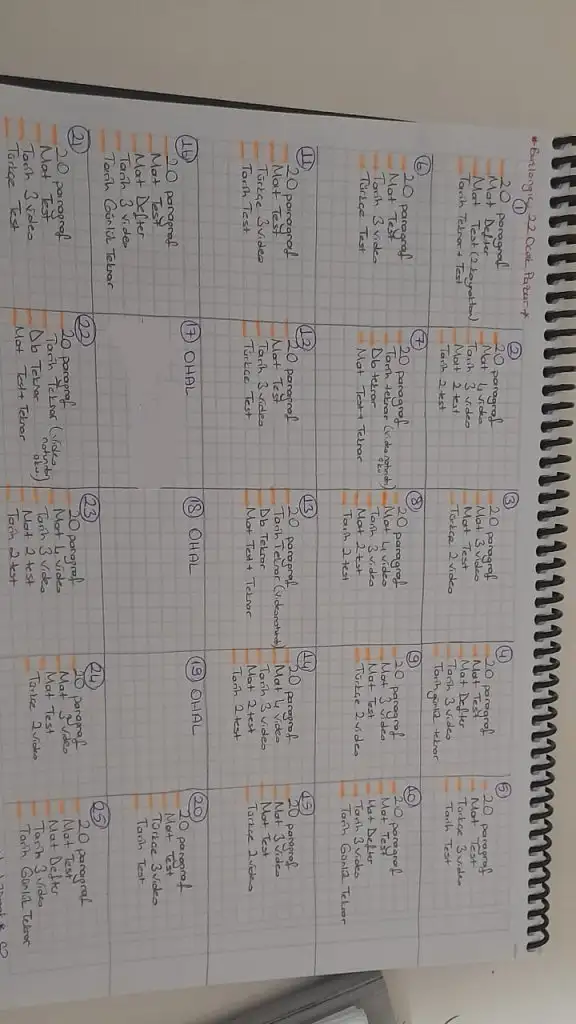 * Başlangıç 22 Ocak Pazar *
①
20 paragraf
Mat Defter
Mat Test (2 kaynaktan)
Tarih Tekrar + Test
②
20 paragraf
Mat 4 video
Tarih 3 video
Mat 2 test
Tarih 2 test
③
20 paragraf
Mat 3 video
Mat Test
Türkçe 2 video
④
20 paragraf
Mat Test
Mat Defter
Tarih 3 video
Tarih günlük tekrar
⑤
20 paragraf
Mat Test
Türkçe 3 video
Tarih Test
⑥
20 paragraf
Mat Test
Tarih 3 video
Türkçe Test
⑦
20 paragraf
Tarih tekrar (video notunda)
Db tekrar
Mat Test + Tekrar
⑧
20 paragraf
Mat 4 video
Tarih 3 video
Mat 2 test
Tarih 2 test
⑨
20 paragraf
Mat 3 video
Mat Test
Türkçe 2 video
⑩
20 paragraf
Mat Test
Mat Defter
Tarih 3 video
Tarih Günlük Tekrar
⑪
20 paragraf
Mat Test
Türkçe 3 video
Tarih Test
⑫
20 paragraf
Mat Test
Tarih 3 video
Türkçe Test
⑬
20 paragraf
Tarih Tekrar (video notunda)
Db Tekrar
Mat Test + Tekrar
⑭
20 paragraf
Mat 4 video
Tarih 3 video
Mat 2 test
Tarih 2 test
⑮
20 paragraf
Mat 3 video
Mat Test
Türkçe 2 video
⑯
20 paragraf
Mat Test
Mat Defter
Tarih 3 video
Tarih Günlük Tekrar
⑰ OHAL
⑱ OHAL
⑲ OHAL
⑳
20 paragraf
Mat Test
Türkçe 3 video
Tarih Test
㉑
20 paragraf
Mat Test
Tarih 3 video
Türkçe Test
㉒
20 paragraf
Tarih Tekrar (video
notundan
oku)
Db Tekrar
Mat Test + Tekrar
㉓
20 paragraf
Mat 4 video
Tarih 3 video
Mat 2 test
Tarih 2 test
㉔
20 paragraf
Mat 3 video
Mat Test
Türkçe 2 video
㉕
20 paragraf
Mat Test
Mat Defter
Tarih 3 video
Tarih Günlük Tekrar